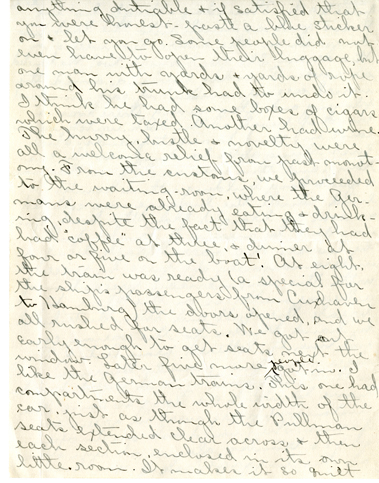 anything dutiable & if satisfied that
you were honest - paste a blue sticker
on & let you go. Some people did not
even have to open their luggage, but
one man with yards & yards of rope
around his trunk had to undo it.
I think he had some boxes of cigars
which were taxed. Another had wine.
The hurry, bustle & novelty were
all a welcome relief from past monot-
ony. From the customs, we proceeded
to the waiting-room, where the Ger-
mans were already eating & drink-
ing, despite the fact that they had
had "coffee" at three & dinner at
four or five on the boat! At eight
the train was ready (a special for
the ship's passengers from Cuxhaven
to Hamburg) the doors opened, and we
all rushed for seats. We got out
early enough to get seats next the
window. Later five more came in. I
like the German trains. This one had
compartments the whole width of the
car, just as though the Pullman
seats extended clear across & then
each section enclosed in its own
little room. It makes it so quiet